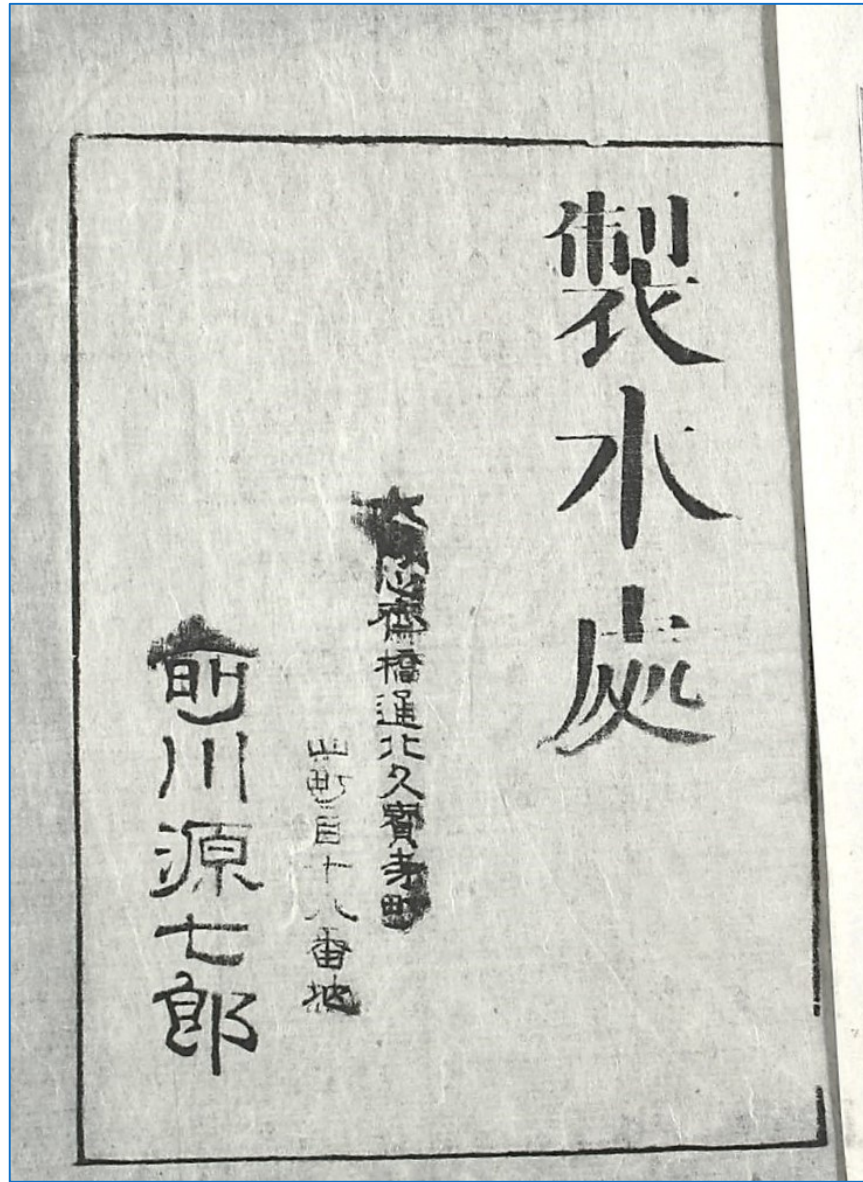 製水處
心齋橋通北久寳寺町
町目十八番地
前川源七郎